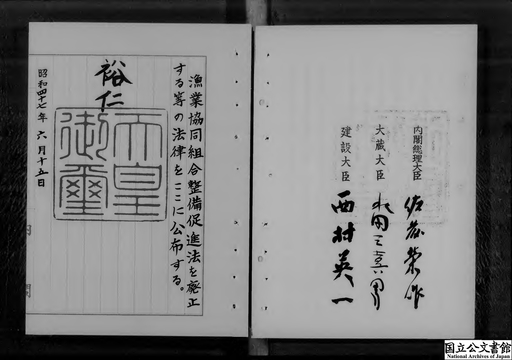 内閣総理大臣 佐藤栄作
大蔵大臣 水田三喜男
建設大臣 西村英一
漁業協同組合整備促進法を廃止
する等の法律をここに公布する。
裕仁
天皇
御璽
昭和四十七年六月十五日
国立公文書館
National Archives of Japan